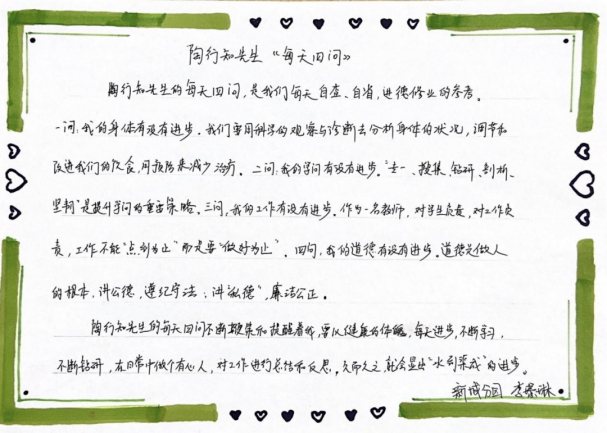 陶行知先生《每天四问》
陶行知先生的每天四问，是我们每天自查、自省，进德修业的参考。
一问：我的身体有没有进步。我们要用科学的观察与诊断去分析身体的状况，调节和
改进我们的饮食，用预防来减少治疗。二问：我的学问有没有进步。"专一、搜集、钻研、剖析、
坚韧"是提升学问的重要策略。三问：我的工作有没有进步。作为一名教师，对学生负责，对工作负
责，工作不能"点到为止"而是要"做好为止"。四问，我的道德有没有进步。道德是做人
的根本，讲公德，遵纪守法；讲"私德"，廉洁公正。
陶行知先生的每天四问不断鞭策和提醒着我，要以健康的体魄，每天进步，不断学习，
不断钻研，在日常中做个有心人，对工作进行总结和反思，久而久之，就会显出"水到渠成"的进步。
新城分园 李